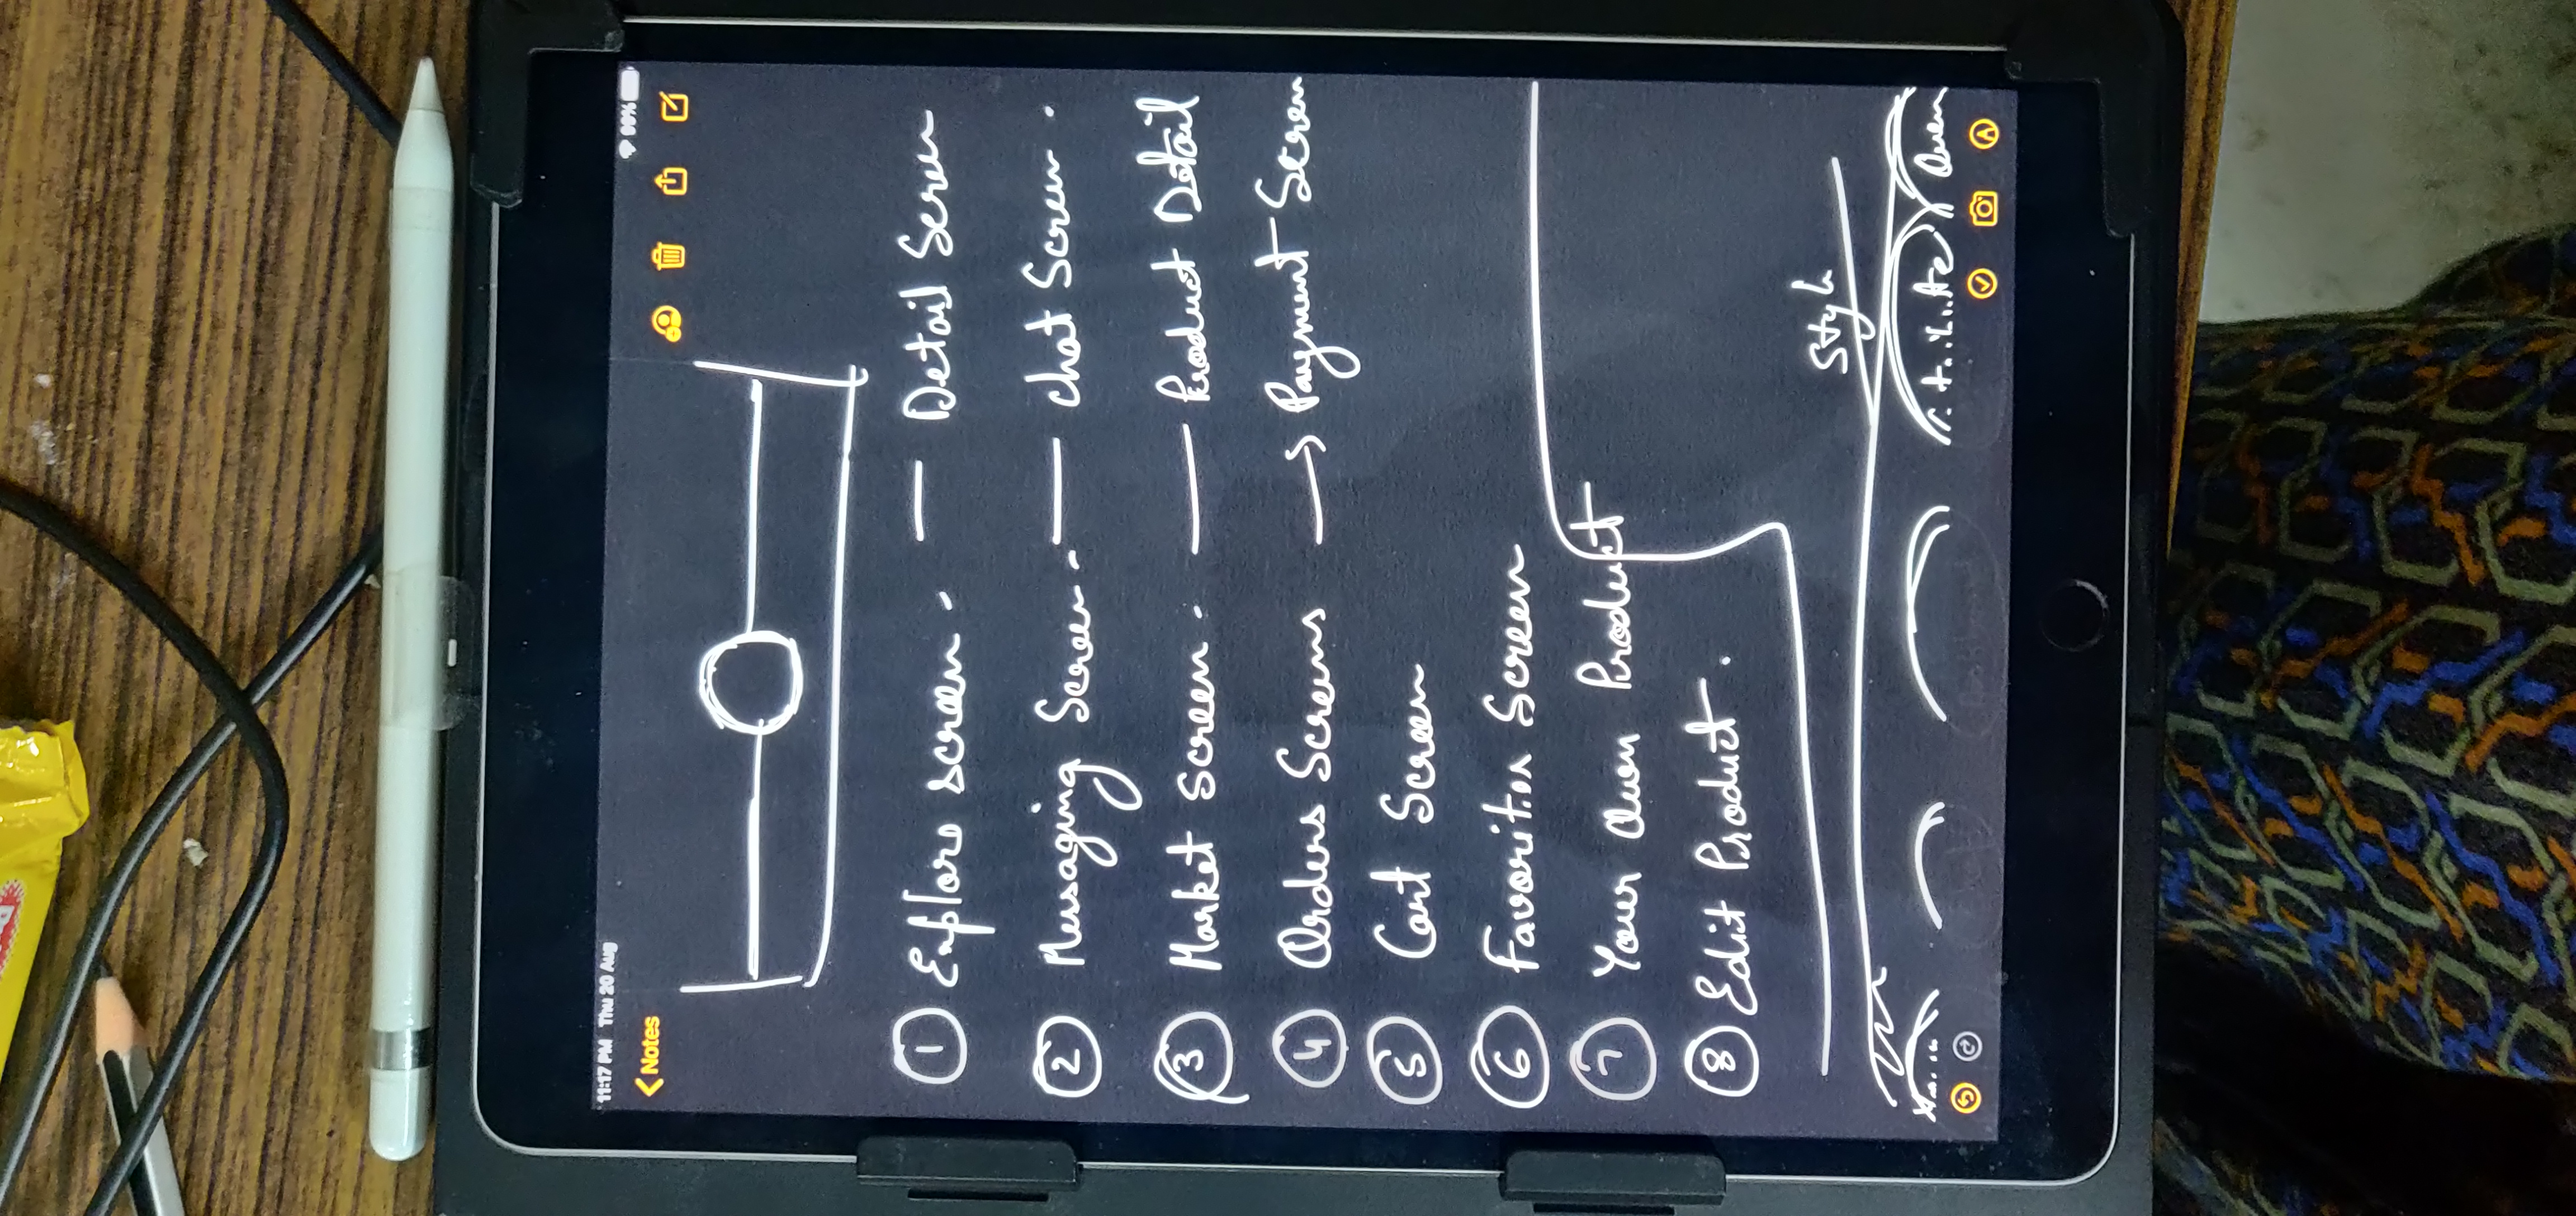 11:17 PM Thu 20 Aug
99%
Notes
1 Explore screen - — Detail Screen
2 Messaging Screen - — Chat Screen .
3 Market Screen - — Product Detail
4 Orders Screens → Payment Screen
5 Cart Screen
6 Favorites Screen
7 Your Own Product
8 Edit Product .
Style